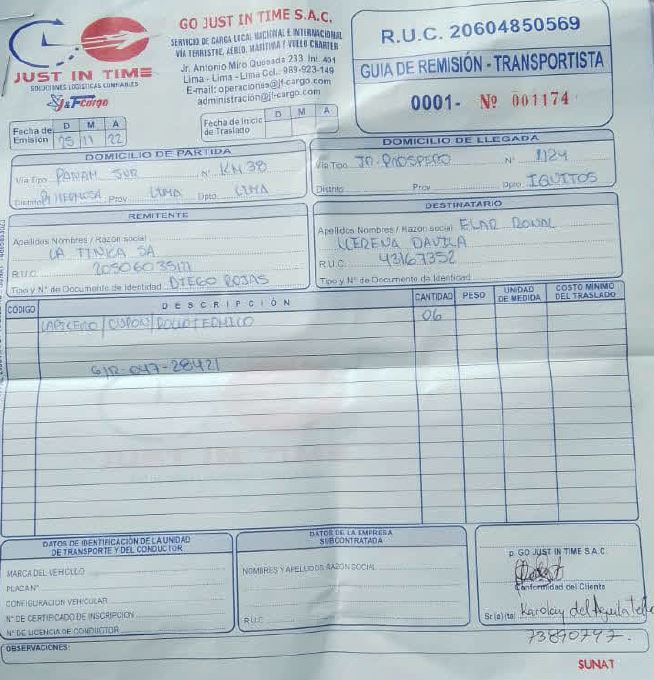 JUST IN TIME
SOLUCIONES LOGISTICAS CONFIABLES
J&Fcargo
GO JUST IN TIME S.A.C.
SERVICIO DE CARGA LOCAL NACIONAL E INTERNACIONAL
VIA TERRESTRE, AEREO, MARITIMA Y VUELO CHARTER
Jr. Antonio Miro Quesada 233 Int. 401
Lima - Lima - Lima Cel. 989-923-149
E-mail: operaciones@jl-cargo.com
administración@jl-cargo.com
R.U.C. 20604850569
GUIA DE REMISIÓN - TRANSPORTISTA
0001- Nº 001174
Fecha de Emisión D M A
25 11 22
Fecha de Inicio de Traslado D M A
DOMICILIO DE PARTIDA
Vía Tipo PANAM SUR Nº KM 38
Distrito Prov LIMA Dpto LIMA
DOMICILIO DE LLEGADA
Vía Tipo JR PROSPERO Nº 1124
Distrito Prov Dpto IQUITOS
REMITENTE
Apellidos Nombres / Razón social
LA TINKA SA
R.U.C. 20506035121
Tipo y N° de Documente de Identidad DIEGO ROJAS
DESTINATARIO
Apellidos Nombres / Razón social ELAR RONAL
LLERENA DAVILA
R.U.C. 43167352
Tipo y N° de Documento de Identidad
CÓDIGO DESCRIPCIÓN CANTIDAD PESO UNIDAD DE MEDIDA COSTO MINIMO DEL TRASLADO
LAPICERO / CUPON / ROLLO TERMICO 06
G/R-047-28421
DATOS DE IDENTIFICACIÓN DE LA UNIDAD
DE TRANSPORTE Y DEL CONDUCTOR
MARCA DEL VEHICULO
PLACA N°
CONFIGURACION VEHICULAR
N° DE CERTIFICADO DE INSCRIPCION
N° DE LICENCIA DE CONDUCTOR
DATOS DE LA EMPRESA
SUBCONTRATADA
NOMBRES Y APELLIDO DE RAZON SOCIAL
R.U.C
p. GO JUST IN TIME S.A.C.
Conformidad del Cliente
Sr(a)(ta) Karolay del Aguila
73890797.
OBSERVACIONES:
SUNAT